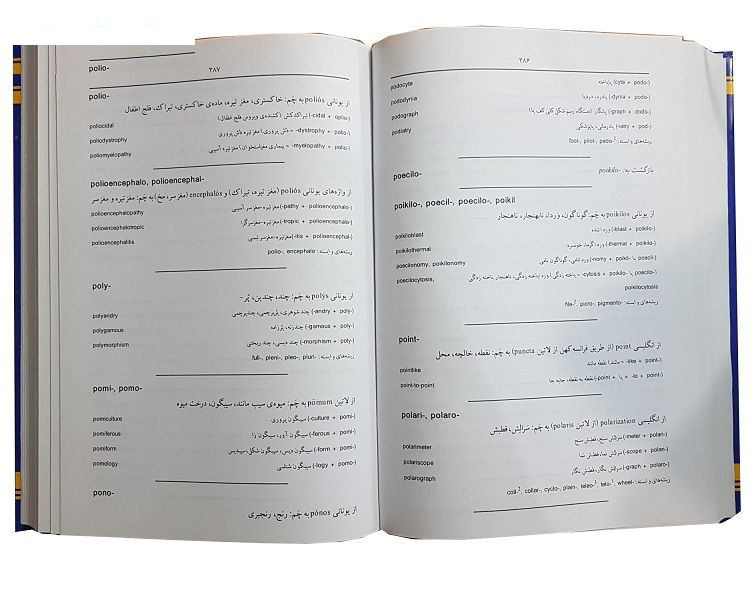 ۳۸۶
podocyte (cyte + podo-) پایاخته
pododynia (-dynia + podo-) پادرد، دردپا
podograph (-graph + podo-) پانگار (دستگاه رسم شکل کلی کف پا)
podiatry (-iatry + pod-) پادرمانی، پاپزشکی
ریشه‌های وابسته: foot-, pilot-, pedo-²
poecilo-
بازگشت به: poikilo-
poikilo-, poecil-, poecilo-, poikil
از یونانی poikilos به چَم: گوناگون، وردا، نابهنجار، ناهنجار
poikiloblast (-blast + poikilo-)
poikilothermal (-thermal + poikilo-)
poecilonomy, poikilonomy (-nomy + poikil- یا poecil-)
poecilocytosis, (-cytosis + poikilo- یا poecilo-)
poikilocytosis
ریشه‌های وابسته: file-², picro-, pigmento-
point-
از انگلیسی point (از طریق فرانسه کهن از لاتین puncta) به چَم: نقطه، خالچه، محل
pointlike (-like + point-) = مانند) نقطه مانند
point-to-point (-point + یا = -to + point-) نقطه به نقطه، جا به جا
polari-, polaro-
از انگلیسی polarization (از لاتین polaris) به چَم: سرالِش، قطبش
polarimeter (-meter + polari-) سرالش سنج، قطبش سنج
polariscope (-scope + polari-) سرالش نما، قطبش نما
polarograph (-graph + polaro-) سرالش نگار، قطبش نگار
ریشه‌های وابسته: coil-², collar-, cyclo-, plain-, teleo-³, telo-¹, wheel-
polio-
۳۸۷
polio-
از یونانی poliós به چَم: خاکستری، مغز تیره، ماده‌ی خاکستری، تیراک، فلج اطفال
poliocidal (-cidal + polio-) تیراک کش (کشنده‌ی ویروس فلج اطفال)
poliodystrophy (-dystrophy + polio-) = دُش پروری) مغز تیره دُش پروری
poliomyelopathy (-myelopathy + polio-) = بیماری مغزاستخوان) مغز تیره آسیبی
polioencephalo, polioencephal-
از واژه‌های یونانی poliós (مغز تیره، تیراک) و encephalós (مغزسر، مخ) به چَم: مغز تیره و مغزسر
polioencephalopathy (-pathy + polioencephalo-) مغز تیره-مغزسر آسیبی
polioencephalotropic (-tropic + polioencephalo-) مغز تیره-مغزسرگرا
polioencephalitis (-itis + polioencephal-) مغز تیره-مغزسر
ریشه‌های وابسته: polio-, encephalo
poly-
از یونانی polýs به چَم: چند، چندین، پُر-
polyandry (-andry + poly-) چند شوهری، پُرپرچمی، چندپرچمی
polygamous (-gamous + poly-) چند زنه، پُرزامه
polymorphism (-morphism + poly-) چند دیسی، چند ریختی
ریشه‌های وابسته: full-, pleni-, pleo-, pluri-
pomi-, pomo-
از لاتین pōmum به چَم: میوه‌ی سیب مانند، سیبگون، درخت میوه
pomiculture (-culture + pomi-) سیبگون پروری
pomiferous (-ferous + pomi-) سیبگون آور، سیبگون زا
pomiform (-form + pomi-) سیبگون دیس، سیبگون شکل، سیبدیس
pomology (-logy + pomo-) سیبگون شناسی
pono-
از یونانی pónos به چَم: رنج، رنجبری